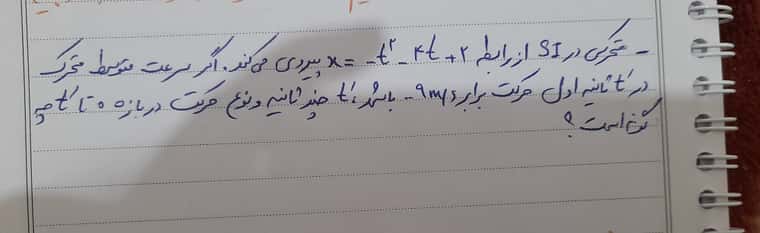 - متحرکی در SI از رابطه x = -t² - ۴t + ۲ پیروی می‌کند. اگر سرعت متوسط متحرک
در t' ثانیه اول حرکت برابر -۹ m/s باشد، t' چند ثانیه و نوع حرکت در بازه ۰ تا t' چه
گونه است؟